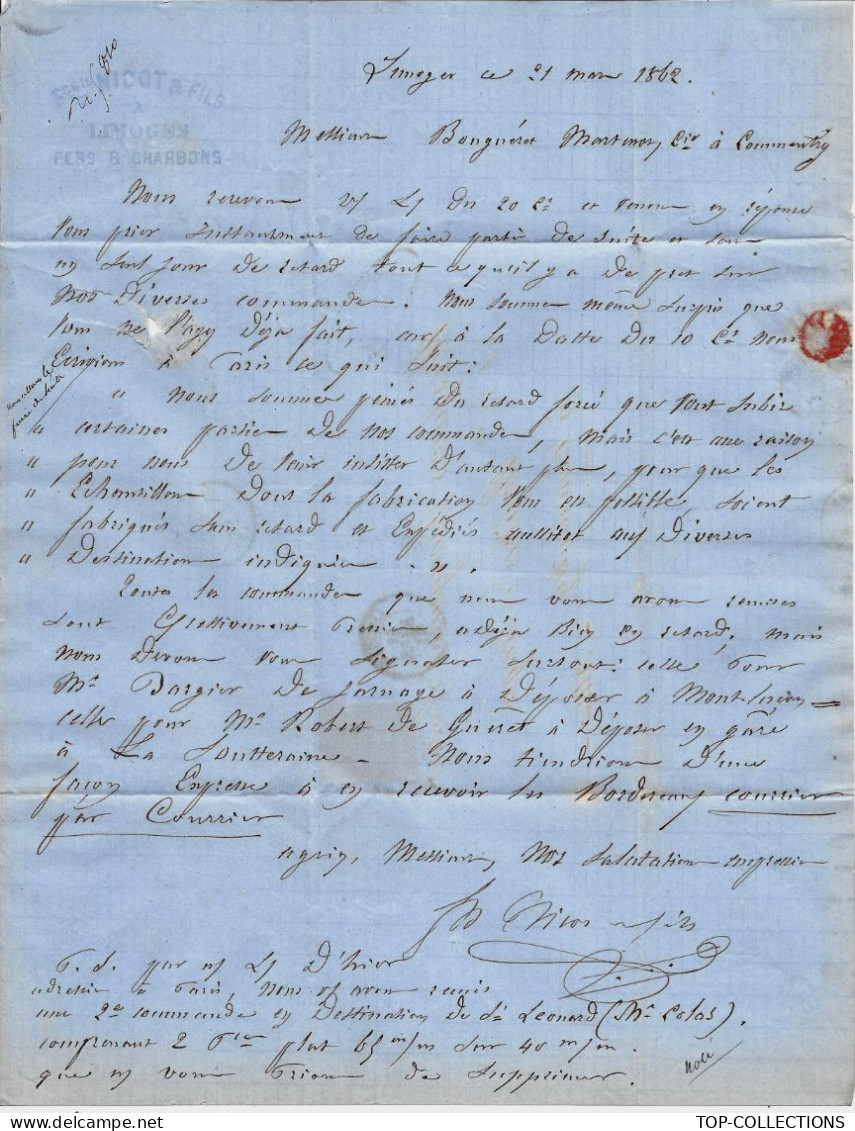 NICOT & FILS
À
LIMOGES
FERS & CHARBONS
Limoges ce 21 mars 1862.
Messieurs Bougueret Martenot Cie à Commentry
Nous recevons v/ L/ du 20 Ct et venons en réponse
vous prier instamment de faire partir de suite et sans
un seul jour de retard tout ce qu'il y a de prêt sur
nos diverses commandes. Nous sommes même surpris que
vous ne l'ayez déjà fait, car à la datte du 10 Ct nous
Ecrivions à Paris ce qui suit:
" Nous sommes peinés du retard forcé que vont subir
" certaines parties de nos commandes, mais c'est une raison
" pour nous de venir insister d'autant plus, pour que les
" Echantillons dont la fabrication vous est possible, soient
" fabriqués sans retard et Expédiés aussitot aux diverses
" Destinations indiquées ".
Toutes les commandes que nous vous avons remises
sont Excessivement pressées, déjà bien en retard, mais
nous devons vous signaler surtout: celle pour
Mr Bargier de Jarnage à déposer à Montluçon =
celle pour Mr Robert de Guéret à déposer en gare
à La Soutteraine - Nous tiendrions d'une
façon Expresse à en recevoir les Bordereaux courrier
par Courrier
agréez, Messieurs, nos salutations empressées
Nicot & fils
P. S. par n/ L/ d'hier
adressée à Paris, nous vs avons remis
une 2e commande en destination de St Leonard (Mr Colas),
comprenant 2 plat 65 m/m sur 40 m/m
que ns vous prions de supprimer.
noté